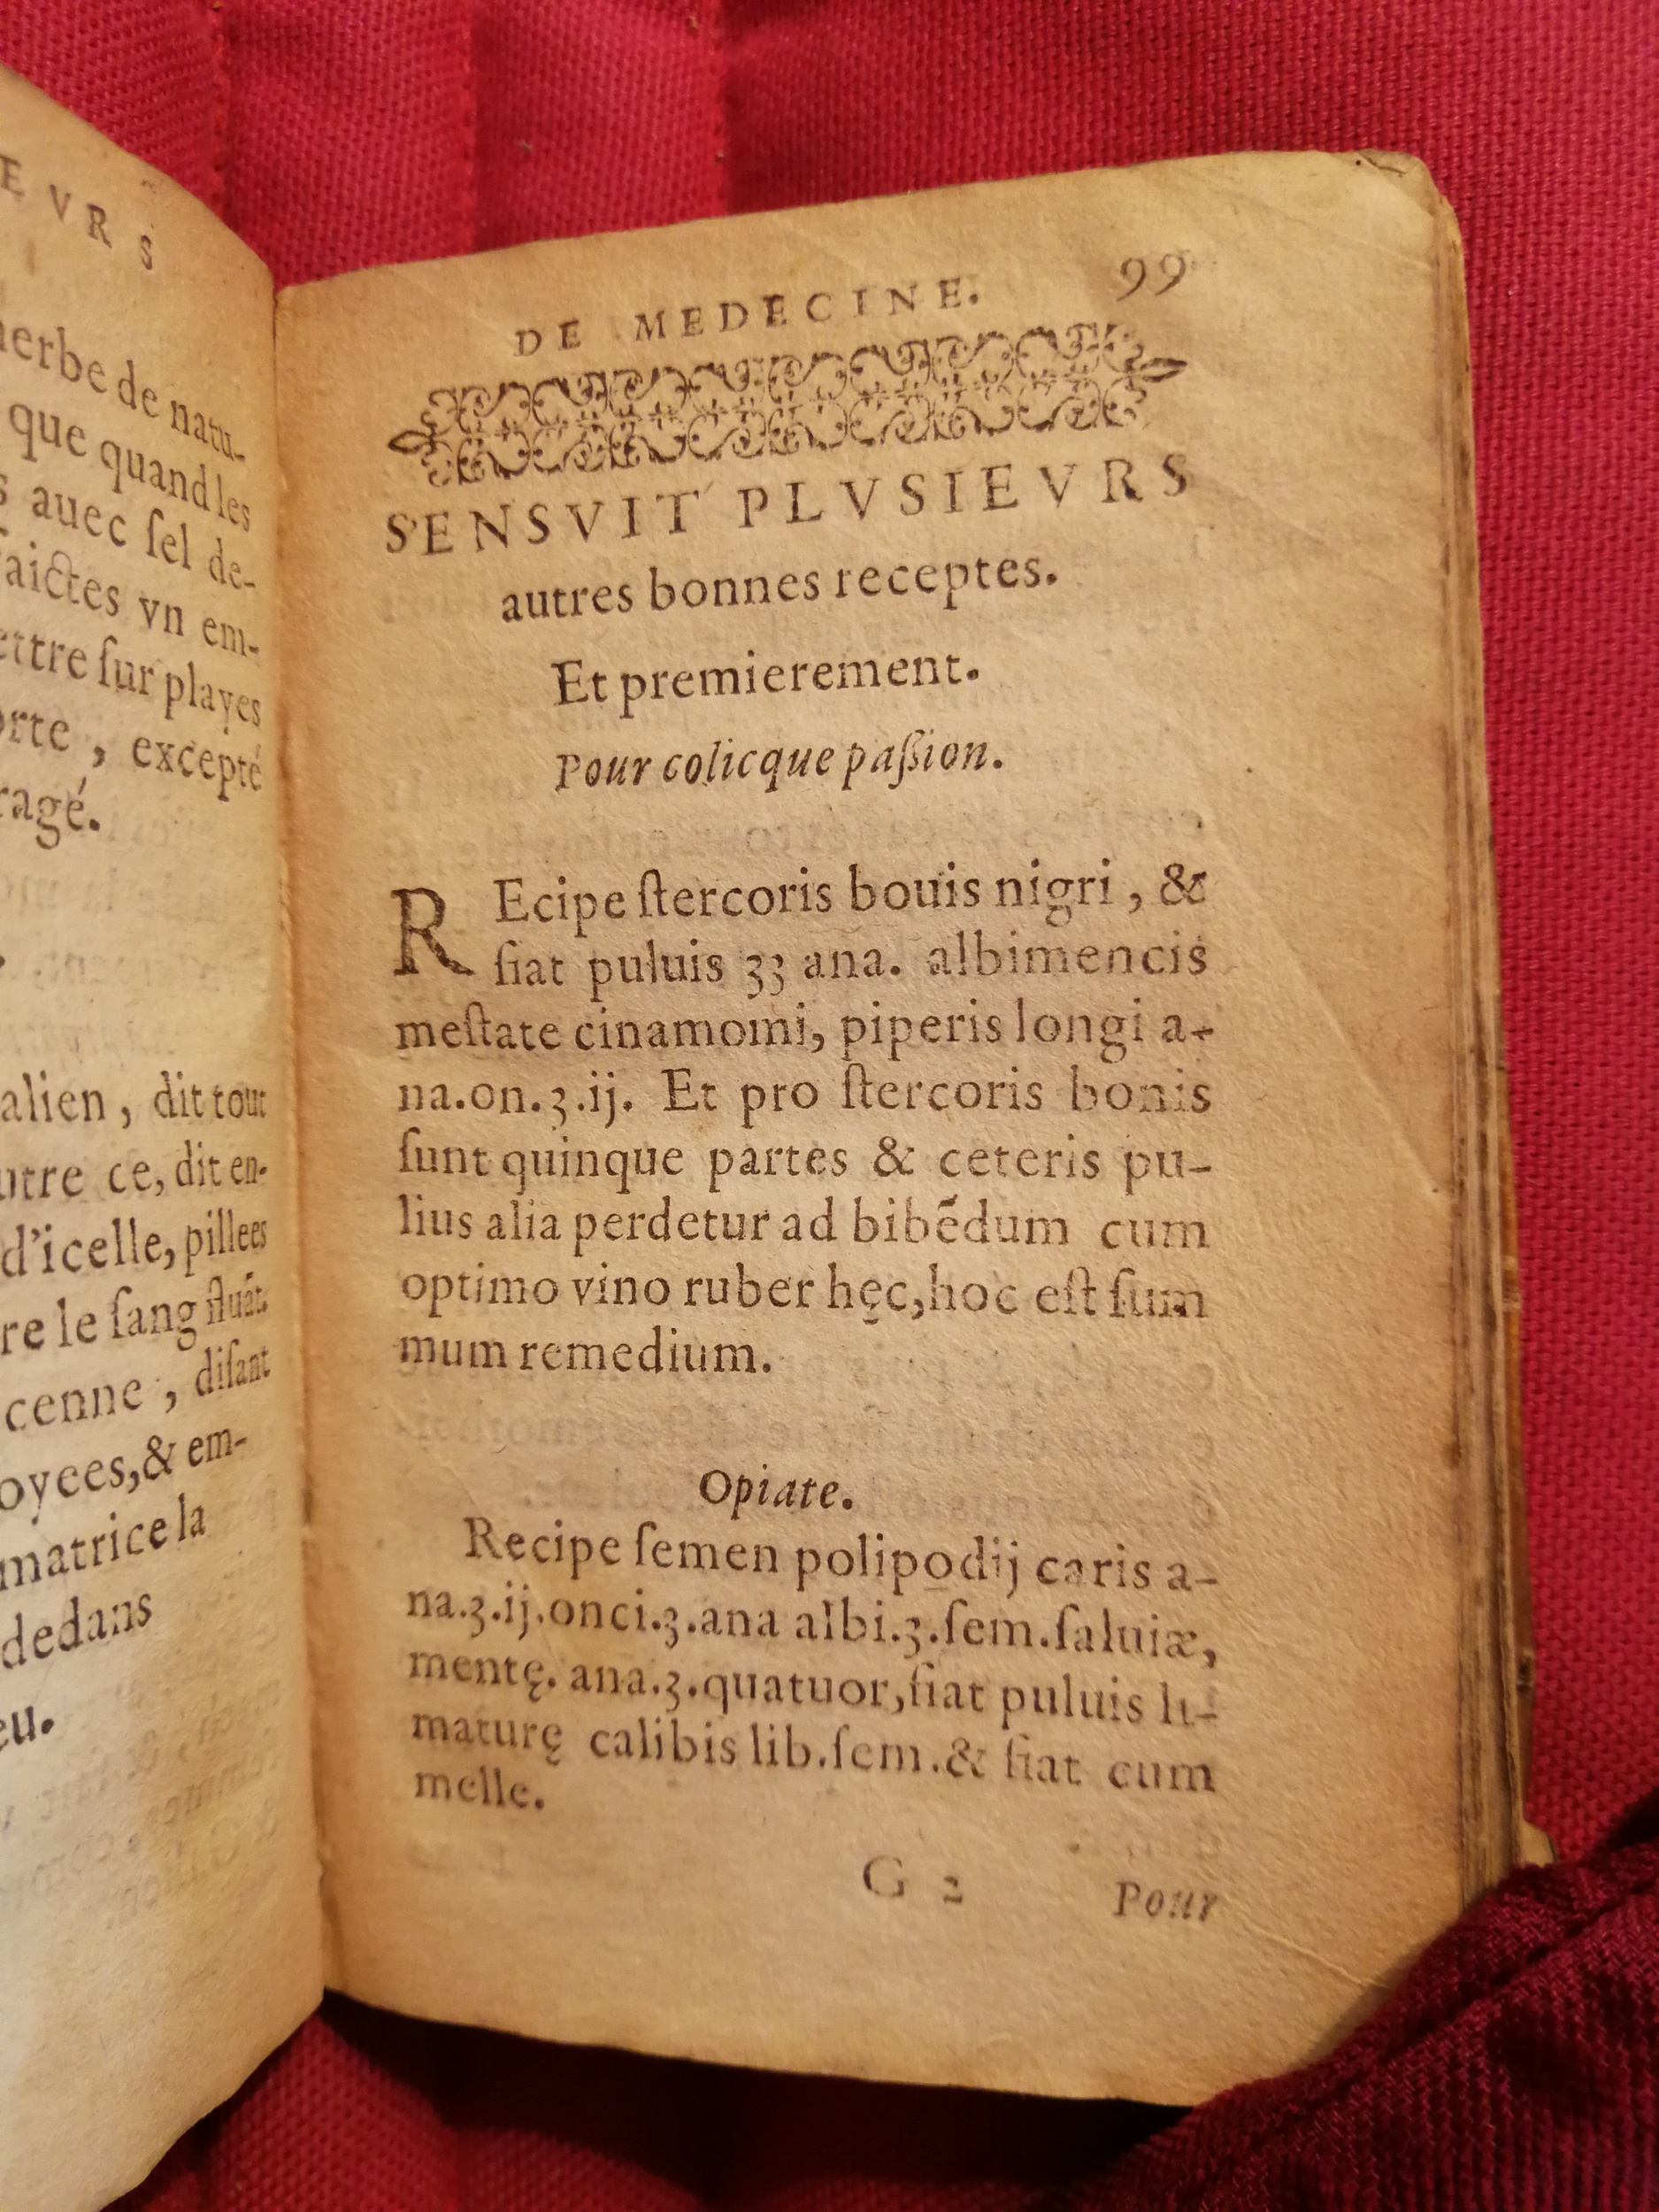 EVRS
herbe de natu-
que quand les
s auec ſel de-
faictes vn em-
ettre ſur playes
orte, excepté
ragé.
alien, dit tout
utre ce, dit en-
d'icelle, pillees
re le ſang fluāt.
cenne, diſant
oyees, & em-
matrice la
dedans
eu.
DE MEDECINE. 99
S'ENSVIT PLVSIEVRS
autres bonnes receptes.
Et premierement.
Pour colicque paſſion.
REcipe ſtercoris bouis nigri, &
fiat puluis ʒʒ ana. albimencis
meſtate cinamomi, piperis longi a-
na.on.ʒ.ij. Et pro ſtercoris bonis
ſunt quinque partes & ceteris pu-
lius alia perdetur ad bibēdum cum
optimo vino ruber hęc, hoc eſt ſum
mum remedium.
Opiate.
Recipe ſemen polipodij caris a-
na.ʒ.ij.onci.ʒ.ana albi.ʒ.ſem.ſaluiæ,
mentę. ana.ʒ.quatuor, fiat puluis li-
maturę calibis lib.ſem.& fiat cum
melle.
G 2 Pour